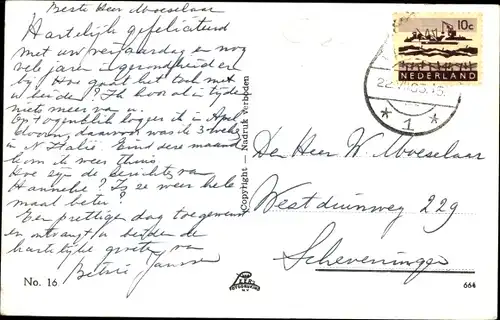 Beste Heer Moeselaar
Hartelijk gefeliciteerd
met uw verjaardag en nog
vele jaren in gezondheid
bij. Hoe gaat het toch met
u ? Ik hoor al in tijden
niets meer van u.
Op 't ogenblik logeer ik in Apel
doorn, daarvoor was ik 3 weken
in N Italië. Eind deze maand
kom ik weer thuis
Hoe zijn de berichten van
Hanneke? Is ze weer hele
maal beter?
Een prettige dag toegewenst
en ontvangt u beiden de
hartelijke groeten van
Betsie Janssen
No. 16
Copyright — Nadruk verboden
10c
NEDERLAND
* 1 *
Den Heer W. Moeselaar
Westduinweg 229
Scheveningen
664